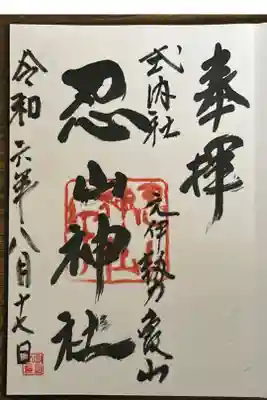 奉拝
式内社
元伊勢 亀山
忍山神社
令和六年八月十七日